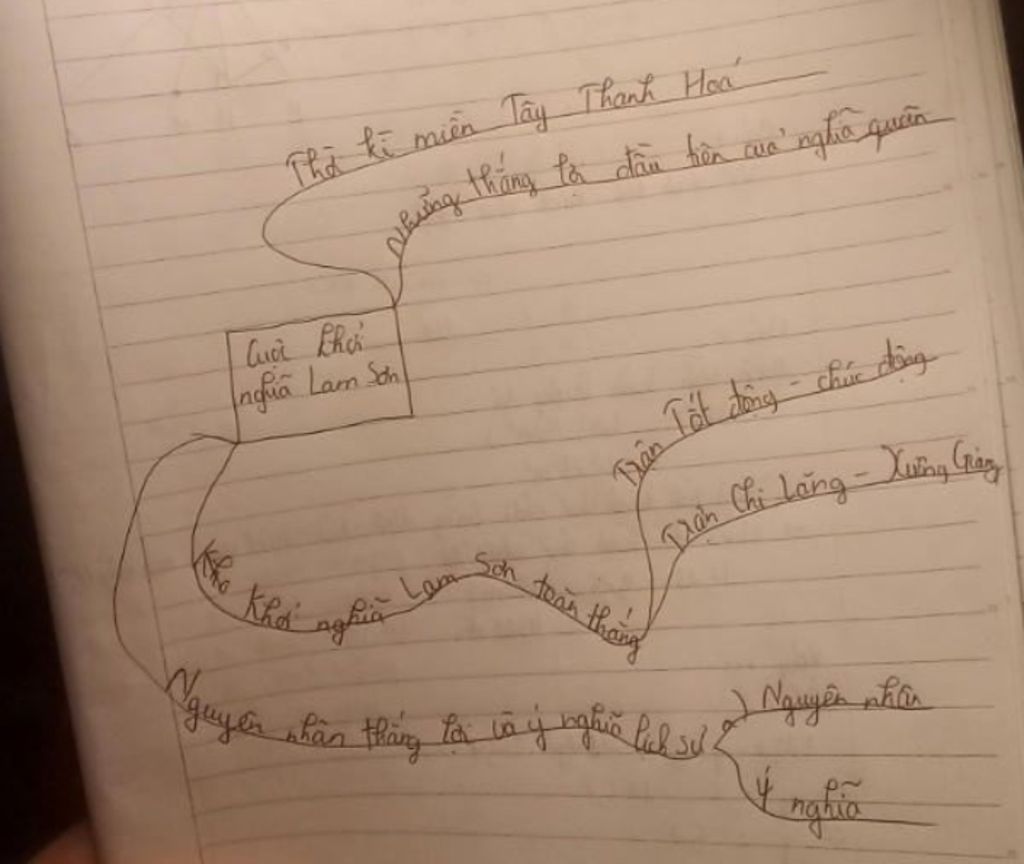 Thời kì miền Tây Thanh Hoá
Những thắng lợi đầu tiên cuả nghĩã quân
Cuộc khởi
nghĩã Lam Sơn
Khởi nghĩã Lam Sơn toàn thắng
Trận Tốt động - chúc động
Trận Chi Lăng - Xương Giang
Nguyên nhân thắng lợi và ý nghĩã lịch sử
Nguyên nhân
Ý nghĩã